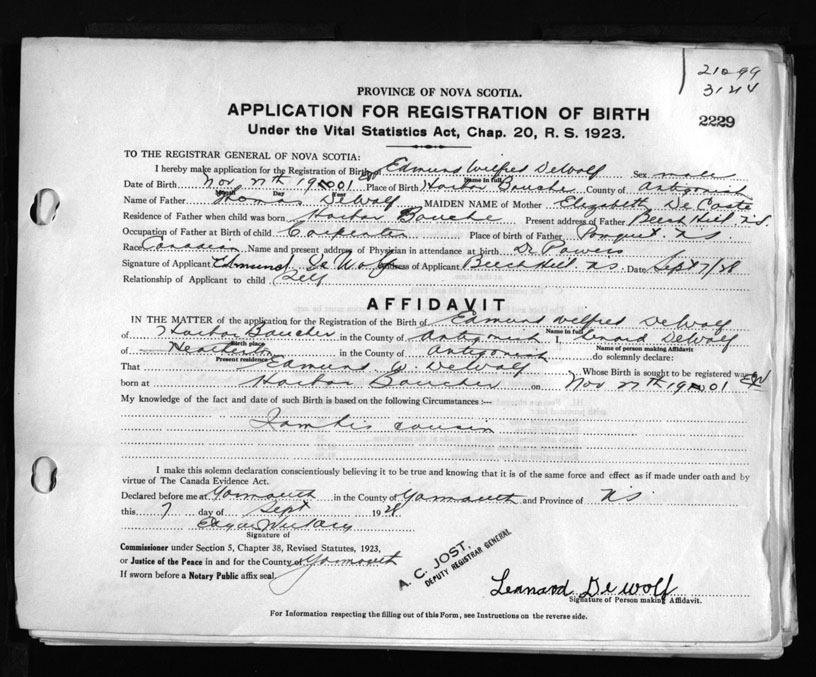 21099
3124
2229
PROVINCE OF NOVA SCOTIA.
APPLICATION FOR REGISTRATION OF BIRTH
Under the Vital Statistics Act, Chap. 20, R. S. 1923.
TO THE REGISTRAR GENERAL OF NOVA SCOTIA:
I hereby make application for the Registration of Birth of Edmund Wilfred DeWolf Sex male
Name in full
Date of Birth Nov 27th 1901 Place of Birth Harbor Boucher County of Antigonish
Month Day Year
Name of Father Thomas DeWolf MAIDEN NAME of Mother Elizabeth DeCoste
Residence of Father when child was born Harbor Bouche Present address of Father Beech Hill. N.S.
Occupation of Father at Birth of child Carpenter Place of birth of Father Pomquet. N.S.
Race Canadian Name and present address of Physician in attendance at birth Dr Powers
Signature of Applicant Edmund De Wolf Address of Applicant Beech Hill. N.S. Date Sept 7/28
Relationship of Applicant to child Self
AFFIDAVIT
IN THE MATTER of the application for the Registration of the Birth of Edmund Wilfred DeWolf
Name in full
of Harbor Boucher in the County of Antigonish I, Lenard DeWolf
Birth place Name of person making Affidavit
of in the County of Antigonish do solemnly declare:
Present residence
That Edmund W. DeWolf Whose Birth is sought to be registered was
born at Harbor Boucher on Nov 27th 1901
My knowledge of the fact and date of such Birth is based on the following Circumstances:
I am his cousin
I make this solemn declaration conscientiously believing it to be true and knowing that it is of the same force and effect as if made under oath and by
virtue of The Canada Evidence Act.
Declared before me at Yarmouth in the County of Yarmouth and Province of N.S.
this 7 day of Sept 1928
Signature of
Commissioner under Section 5, Chapter 38, Revised Statutes, 1923,
or Justice of the Peace in and for the County of Yarmouth
If sworn before a Notary Public affix seal.
A. C. JOST,
DEPUTY REGISTRAR GENERAL
Lennard DeWolf
Signature of Person making Affidavit.
For Information respecting the filling out of this Form, see Instructions on the reverse side.